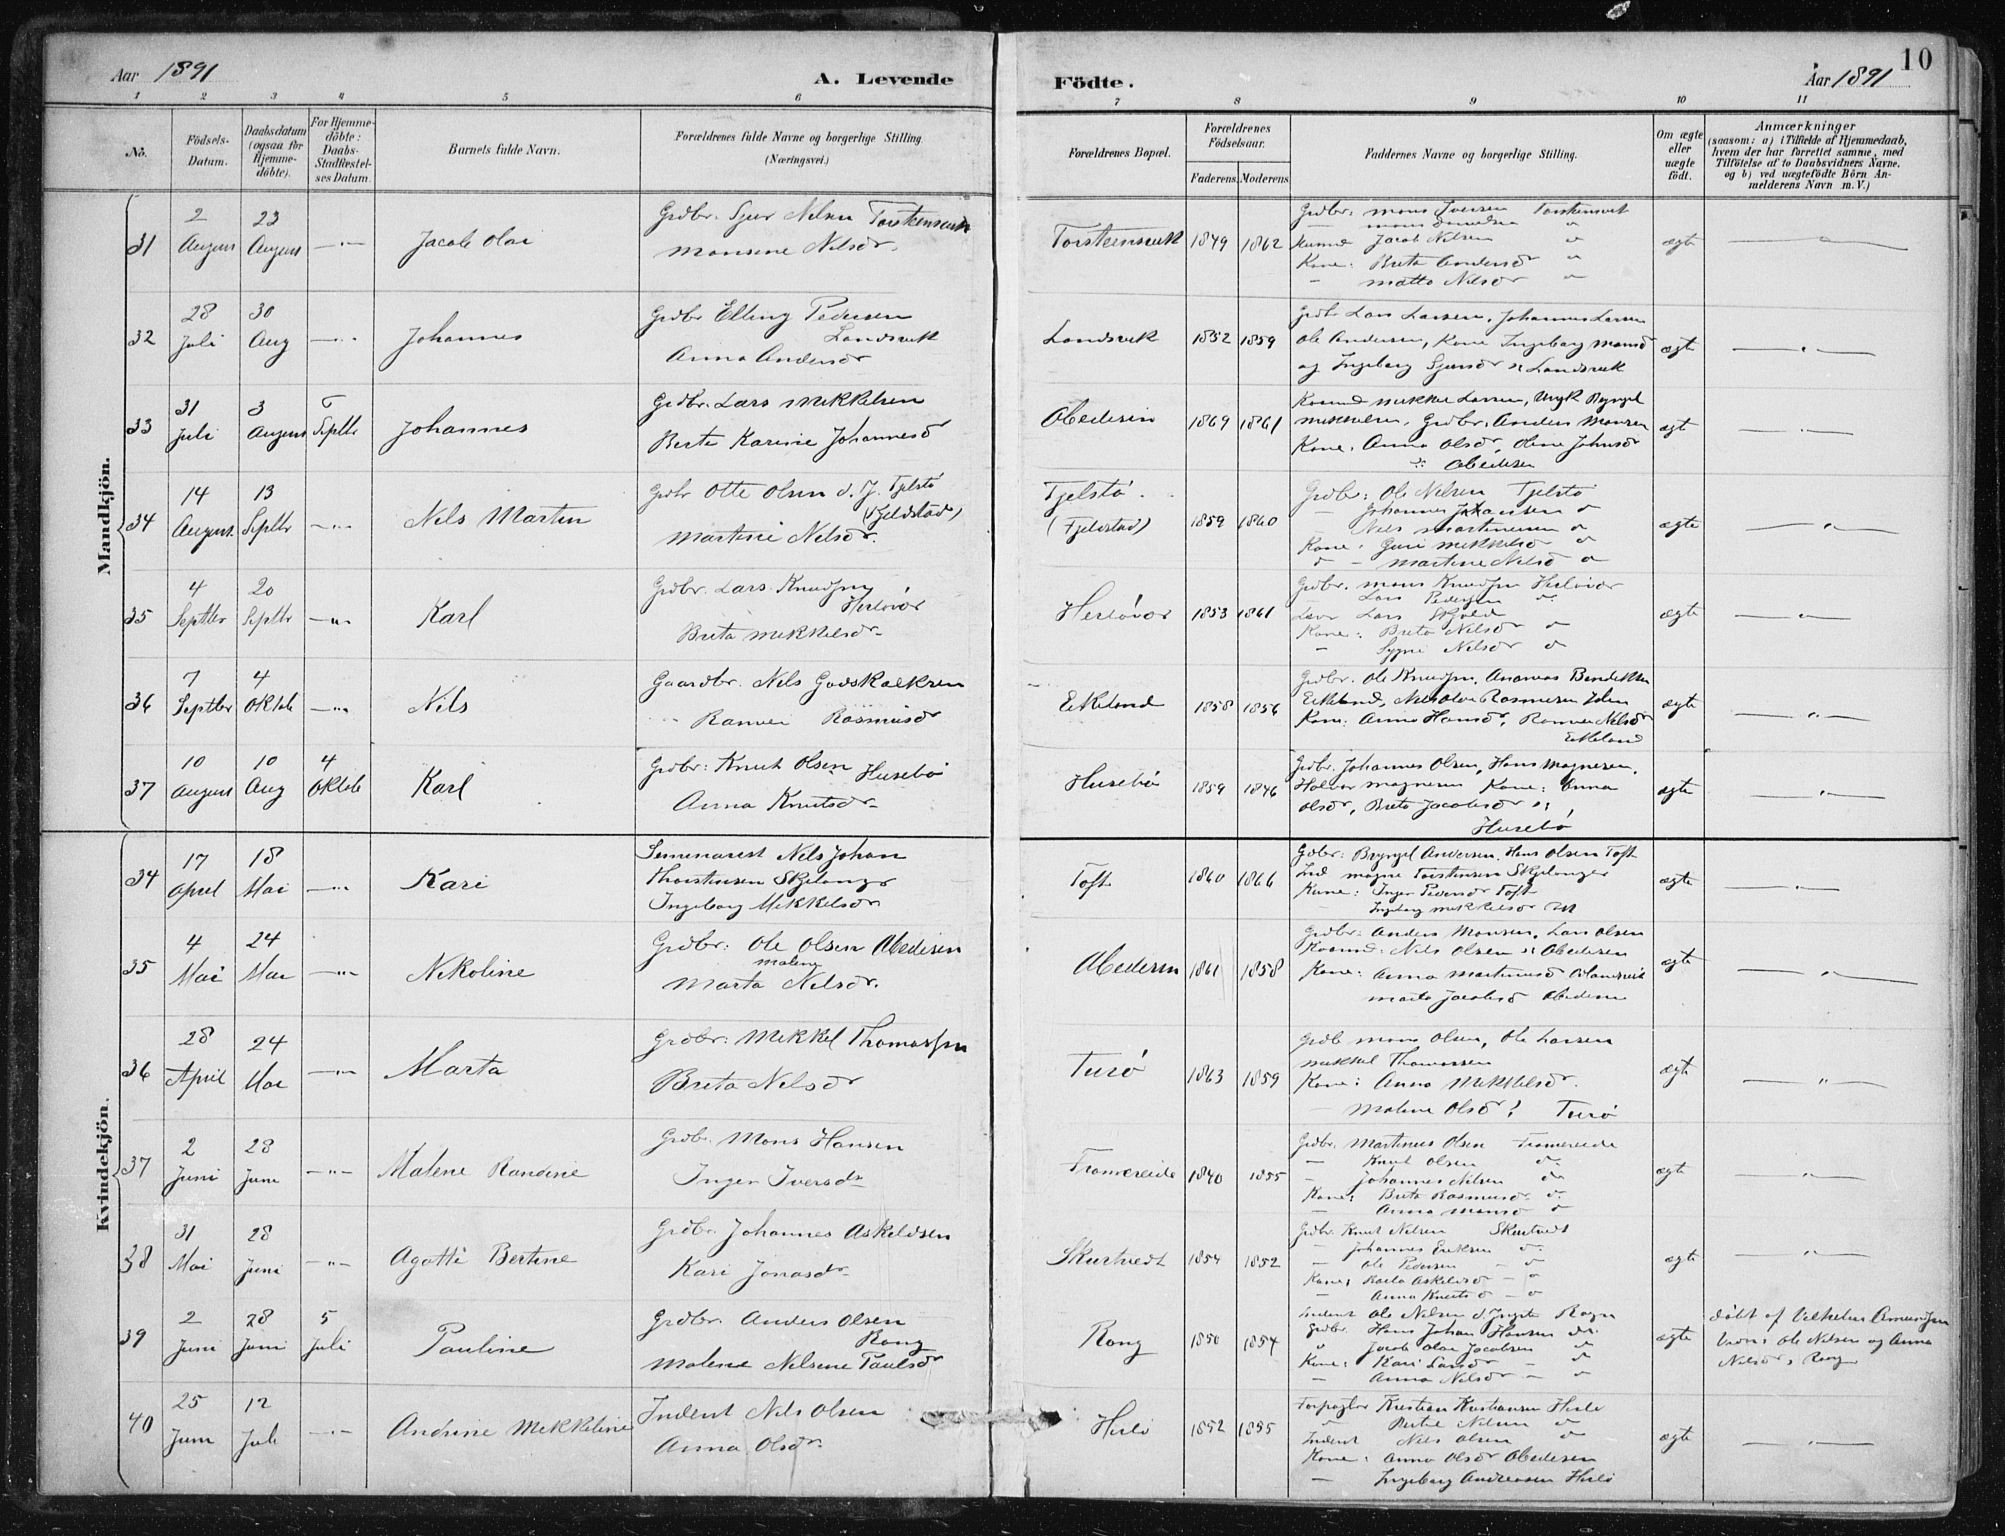 10
Aar 1891
A. Levende
Födte.
Aar 1891
1 2 3 4 5 6 7 8 9 10 11
No.
Födsels-
Datum.
Daabsdatum
(ogsaa for
Hjemme-
döbte).
For Hjemme-
döbte:
Daabs-
Stadfæstel-
ses Datum.
Barnets fulde Navn.
Forældrenes fulde Navne og borgerlige Stilling.
(Næringsvei.)
Forældrenes Bopæl.
Forældrenes
Födselsaar.
Faderens. Moderens.
Faddernes Navne og borgerlige Stilling.
Om ægte
eller
uægte
födt.
Anmærkninger
(saasom: a) i Tilfælde af Hjemmedaab,
hvem der har forrettet samme, med
Tilföielse af to Daabsvidners Navne.
og b) ved uægtefödte Börn An-
melderens Navn m. V.)
Mandkjön.
31
2
August
23
August
Jacob Olai
Grdbr. Sjur Nilsen Torsteinsvik
Monsine Nilsdr.
Torsteinsvik 1849 1862
Grdbr: Mons Iversen Torsteinsvik
Jacob Nilsen
Kone: Brita Andersdr
Matta Nilsdr
ægte
32
28
Juli
30
Aug
Johannes
Grdbr Elling Pedersen
Landsvik
Anna Andersdr
Landsvik 1852 1859
Grdbr Lars Larsen, Johannes Larsen
Ole Andersen, Kone Ingeborg Monsd
og Ingeborg Sjursdr Landsvik
ægte
33
31
Juli
3
August
6
Septbr
Johannes
Grdbr. Lars Mikkelsen
Berte Karine Johannesd
Abedisen 1869 1861
Mikkel Larsen, Ungk Brynjel
Mikkelsen, Grdbr. Anders Monsen
Kone. Anna Olsdr, Oline Johnsdr
Abedisen
ægte
34
14
August.
13
Septbr
Nils Martin
Grdbr Otte Olsen d. y. Tjelstö
(Fjeldstad)
Martine Nilsdr.
Tjelstö.
(Fjeldstad) 1859 1860
Grdbr: Ole Nilsen Tjelstö
Johannes Johansen
Nils Martinusen
Kone: Guri Mikkelsd
Martine Nilsd
ægte
35
4
Septbr
20
Septbr
Karl
Grdbr. Lars Knudsen
Herlövær
Brita Mikkelsdr
Herlövær 1853 1861
Grdbr. Mons Knudsen Herlövær
Lars Pedersen
Kone: Brita Nilsdr
Sygni Nilsdr
ægte
36
7
Septbr
4
Oktob
Nils
Gaardbr. Nils Godskalksen
Ranvei Rasmusdr
Eikeland 1858 1856
Grdbr. Ole Knudsen, Andreas Bendiktsen
Eikeland, Rasmusen
Kone: Anna Hansdr, Ranvei Nilsdr
Eikeland
ægte
37
10
August
10
Aug
4
Oktob
Karl
Grdbr: Knut Olsen Husebö
Anna Knutsdr
Husebö 1859 1846
Grdbr. Johannes Olsen, Hans Magnesen,
Halvor Magnesen Kone: Anna
Olsdr, Brita Jacobsdr
Husebö
ægte
Kvindekjön.
34
17
April
18
Mai
Kari
Seminarist Nils Johan
Thorstensen Skjelanger
Ingeborg Mikkelsdr.
Toft 1860 1866
Grdbr: Brynjel Andersen, Hans Olsen Toft
Ind Magne Torstensen Skjelanger
Kone: Inger Pedersdr Toft
Ingeborg Mikkelsdr
ægte
35
4
Mai
24
Mai
Nikoline
Grdbr: Ole Olsen Abedisen
Malene
Marta Nilsdr.
Abedisen 1861 1858
Grdbr: Anders Monsen, Lars Olsen
Nils Olsen Abedisen
Kone: Anna Martinusd Landsvik
Marta Jacobsd Abedisen
ægte
36
28
April
24
Mai
Marta
Grdbr: Mikkel Thomassen
Brita Nilsdr
Turö 1863 1859
Grdb Mons Olsen, Ole Larsen
Mikkel Thomassen
Kone: Anna Mikkelsdr.
Malene Olsd Turö
ægte
37
2
Juni
28
Juni
Malene Randine
Grdbr. Mons Hansen
Inger Iversdr
Tromereide 1840 1855
Grdbr. Martinus Olsen Tromereide
Knut Olsen
Johannes Nilsen
Kone: Brita Rasmusdr
Anna Monsd
ægte
38
31
Mai
28
Juni
Agatte Bertine
Grdbr. Johannes Askeldsen
Kari Jonasdr
Skurtvedt 1854 1852
Grdbr. Knut Nilsen Skurtvedt
Johannes Eriksen
Ole Pedersen
Kone: Marta Askeldsd
Anna Knutsd
ægte
39
2
Juni
28
Juni
5
Juli
Pauline
Grdbr. Anders Olsen
Rong
Malene Nilsine Paulsdr
Rong 1850 1854
Inderst Ole Nilsen d. yngste Rong
Grdbr. Hans Johan Hansen
Jacob Olai Jacobsen
Kone: Kari Larsdr
Anna Nilsdr
ægte
döbt af Vilhelm Amundsen
Ole Nilsen og Anna
Nilsdr, Rong
40
25
Juni
12
Juli
Andrine Mikkeline
Inderst Nils Olsen
Anna Olsdr
Herlö 1852 1855
Forpagter Kristian Kristiansen Herlö
Bertel Nilsen
Inderst Nils Olsen
Kone: Anna Olsdr Abedisen
Ingeborg Andreasen Herlö
ægte